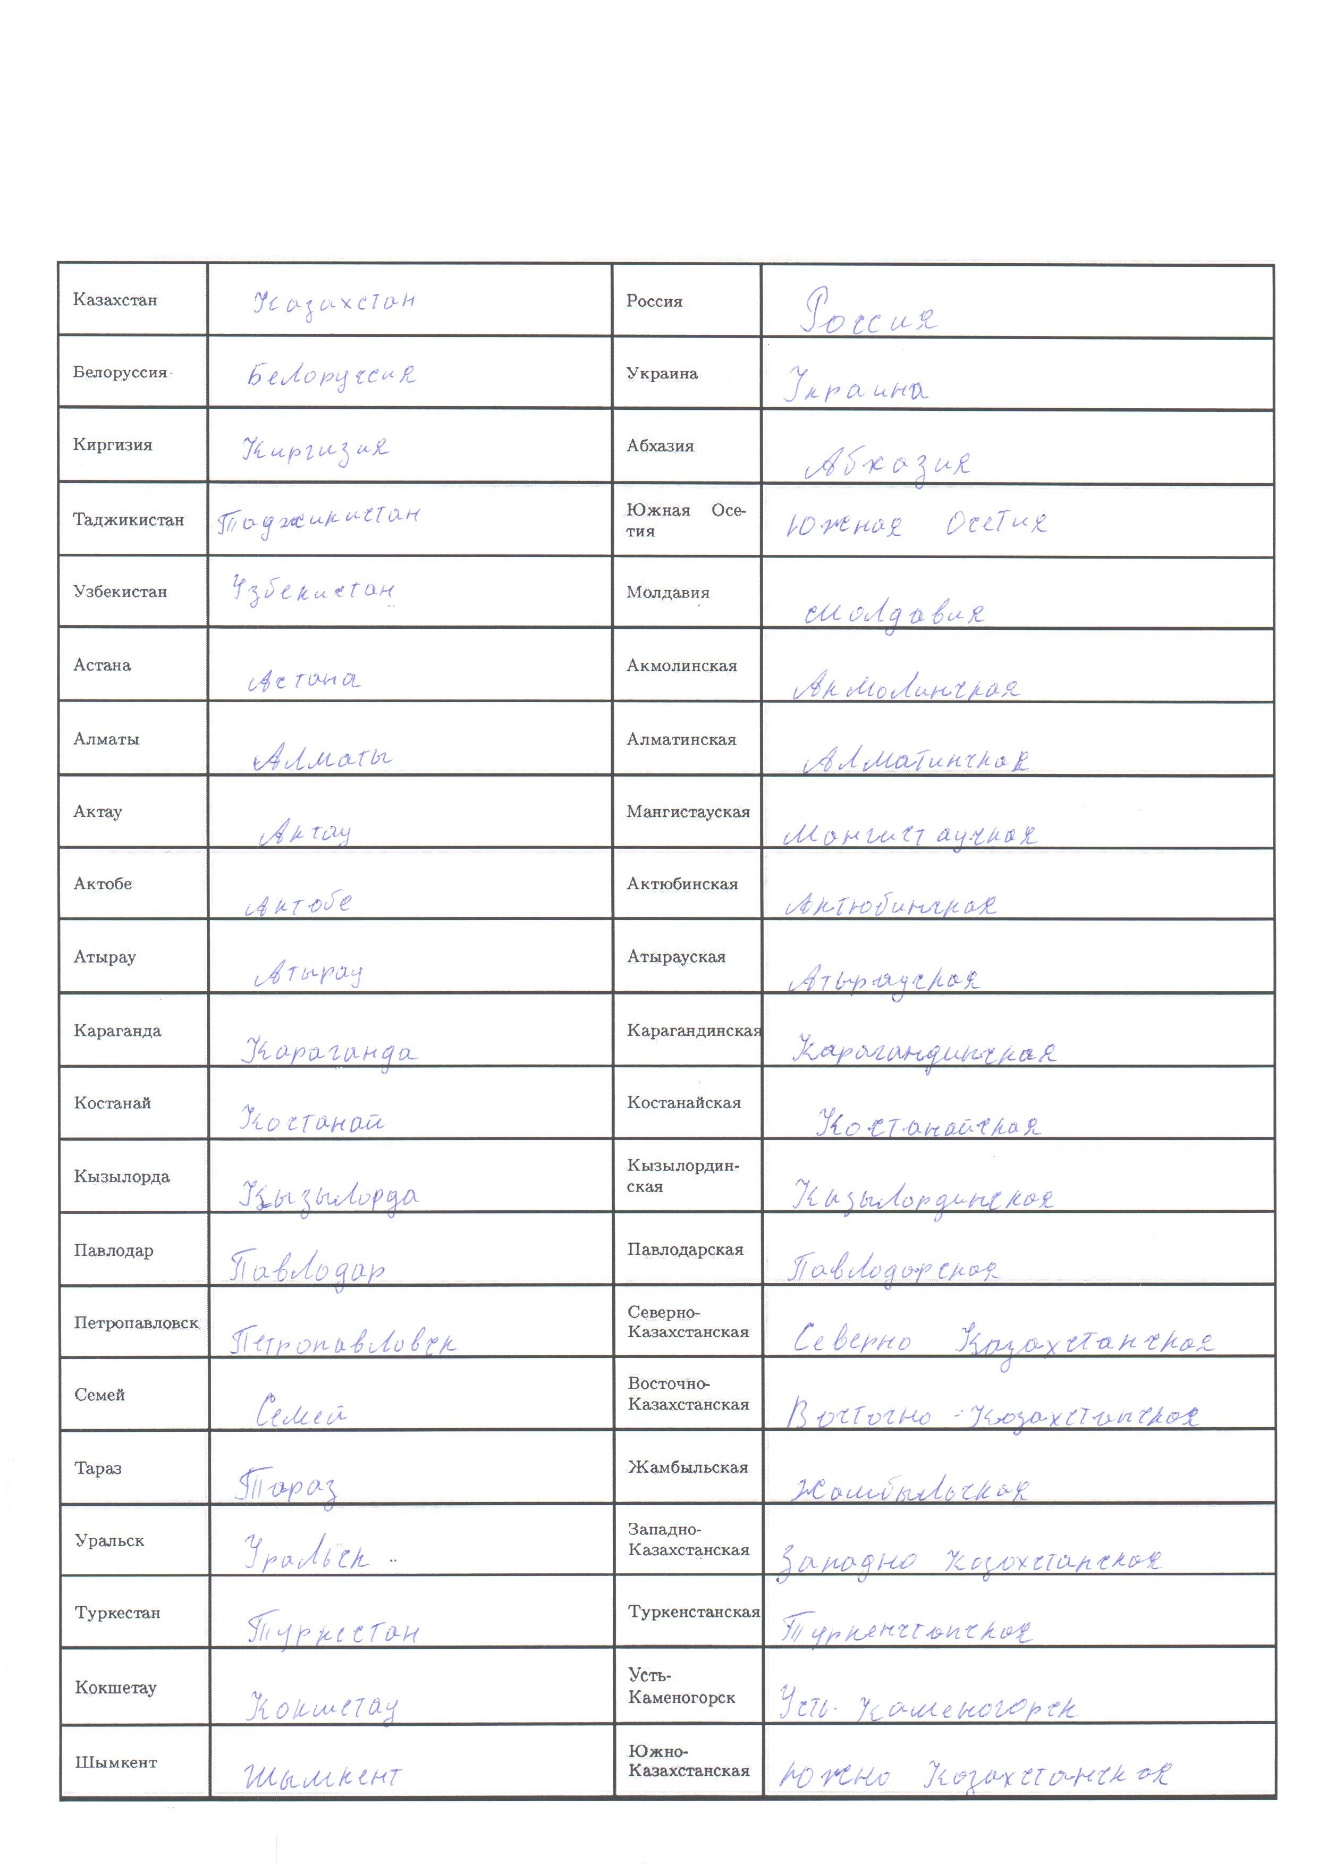 Казахстан Казахстан Россия Россия
Белоруссия Белоруссия Украина Украина
Киргизия Киргизия Абхазия Абхазия
Таджикистан Таджикистан Южная Осе-
тия Южная Осетия
Узбекистан Узбекистан Молдавия Молдавия
Астана Астана Акмолинская Акмолинская
Алматы Алматы Алматинская Алматинская
Актау Актау Мангистауская Мангистауская
Актобе Актобе Актюбинская Актюбинская
Атырау Атырау Атырауская Атырауская
Караганда Караганда Карагандинская Карагандинская
Костанай Костанай Костанайская Костанайская
Кызылорда Кызылорда Кызылордин-
ская Кызылординская
Павлодар Павлодар Павлодарская Павлодарская
Петропавловск Петропавловск Северно-
Казахстанская Северно Казахстанская
Семей Семей Восточно-
Казахстанская Восточно-Казахстанская
Тараз Тараз Жамбыльская Жамбыльская
Уральск Уральск Западно-
Казахстанская Западно Казахстанская
Туркестан Туркестан Туркенстанская Туркенстанская
Кокшетау Кокшетау Усть-
Каменогорск Усть-Каменогорск
Шымкент Шымкент Южно-
Казахстанская Южно Казахстанская